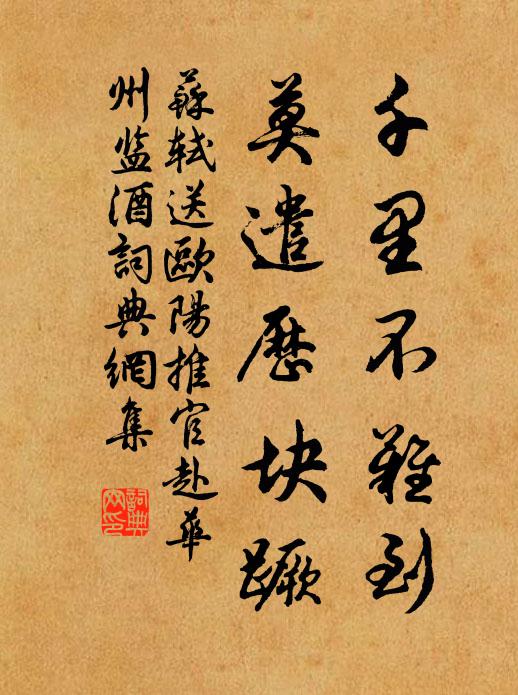 千里不難到
莫遣歷块蹶
蘇軾送歐陽推官赴華
州监酒詞典網集
詞典
网印